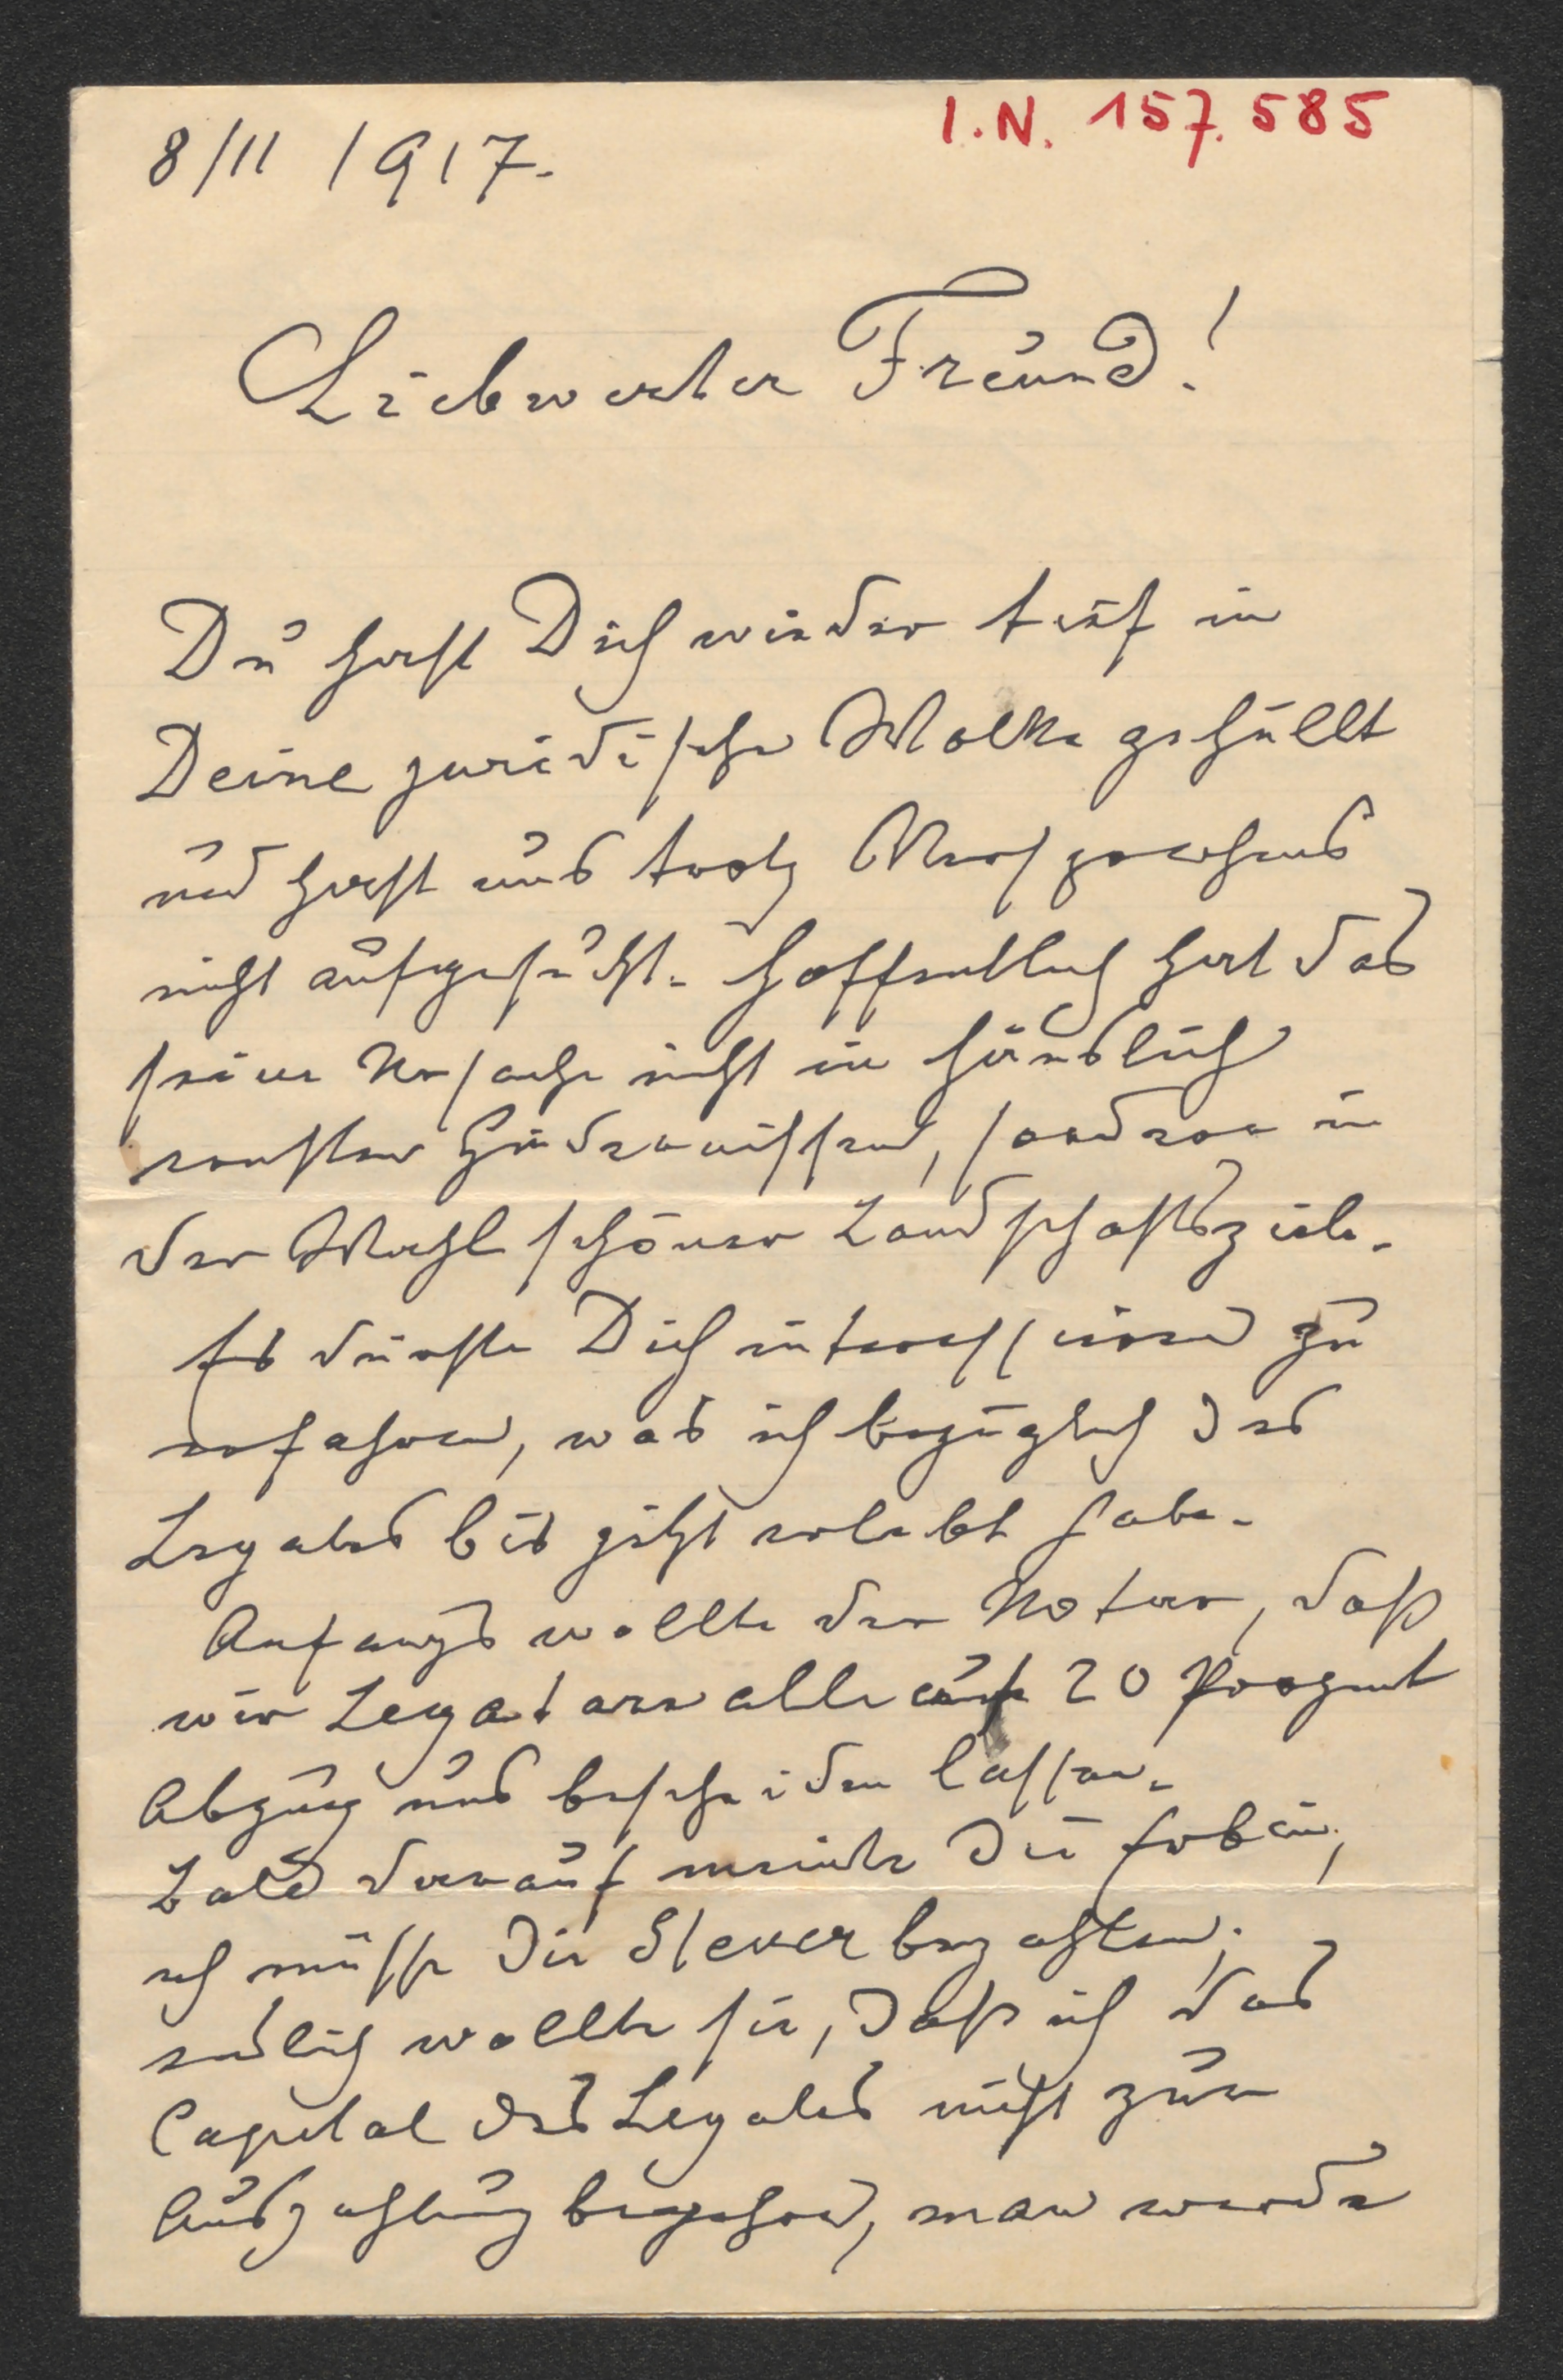 I.N. 157.585
8/II 1917.
Liebwerter Freund!
Du hast Dich wieder tief in
Deine juridische Wolke gehüllt
und hast uns trotz Versprechens
nicht aufgesucht. Hoffentlich hat das
seine Ursache nicht in häuslich
ernsten Hindernissen, sondern in
der Wahl schöner Landschaftsziele.
Es dürfte Dich interessieren zu
erfahren, was ich bezüglich des
Legates bis jetzt erlebt habe.
Anfangs wollte der Notar, daß
wir Legatare alle auf 20 Prozent
Abzug uns bescheiden lassen.
Bald darauf meinte die Erbin,
ich müsse die Steuer bezahlen;
endlich wollte sie, daß ich das
Capital des Legates nicht zur
Auszahlung begehre, man werde